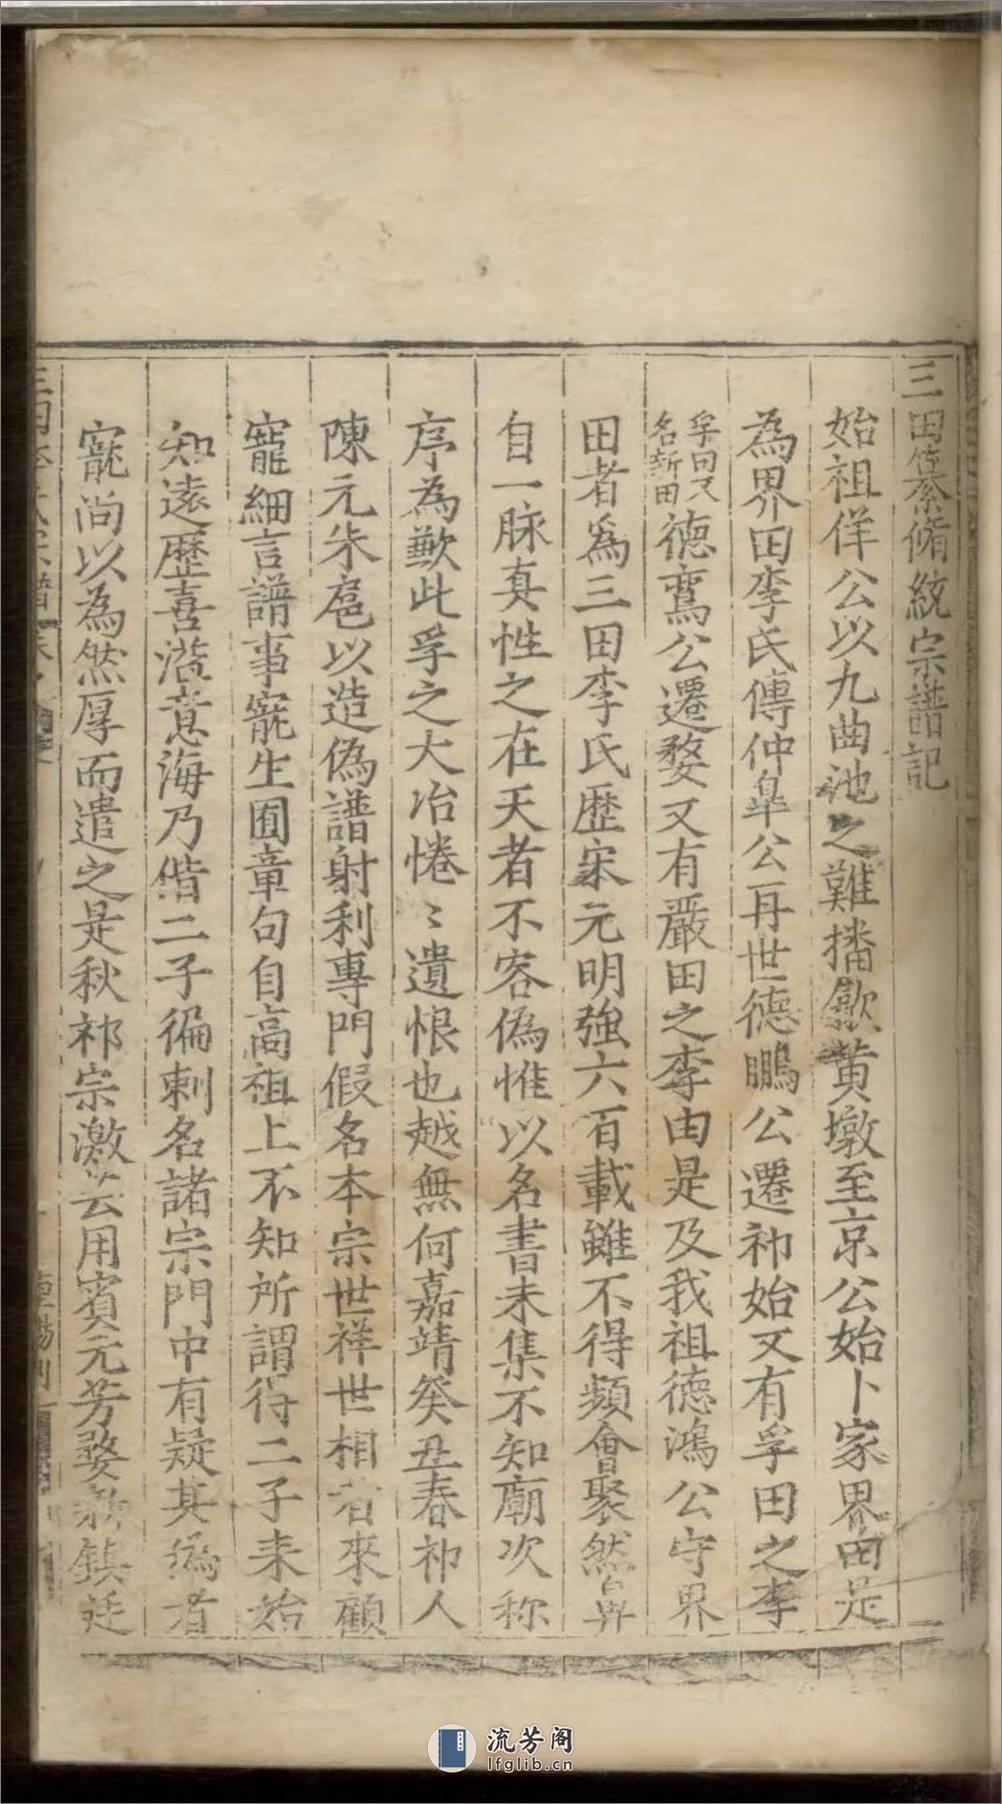 三田纂脩統宗譜記
始祖佯公以九曲池之難播歙黄墩至京公始卜家界田是
為界田李氏傳仲臯公再世德鵬公遷祁始又有孚田之李
孚田又名新田德鸞公遷婺又有嚴田之李由是及我祖德鴻公守界
田者爲三田李氏歴宋元明強六百載雖不得頻會聚然
自一脉真性之在天者不容偽惟以名書未集不知廟次称
序為歉此孚之大冶惓〻遺恨也越無何嘉靖癸丑春祁人
陳元朱扈以造偽譜射利專門假名本宗世祥世相者來顧
寵細言譜事寵生囿章句自高祖上不知所謂待二子来始
知遠歷喜溢意海乃偕二子徧刺名諸宗門中有疑其為者
寵尚以為然厚而遣之是秋祁宗激芸用賓元芳婺新鎮廷
三田李氏宗譜
流芳阁
lfglib.cn